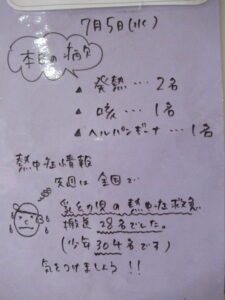 7月5日(水)
本日の病欠
▲ 発熱…2名
▲ 咳…1名
▲ ヘルパンギーナ…1名
熱中症情報
先週は全国で
乳幼児の熱中症救急
搬送28名でした。
(少年304名です)
気をつけましょう!!